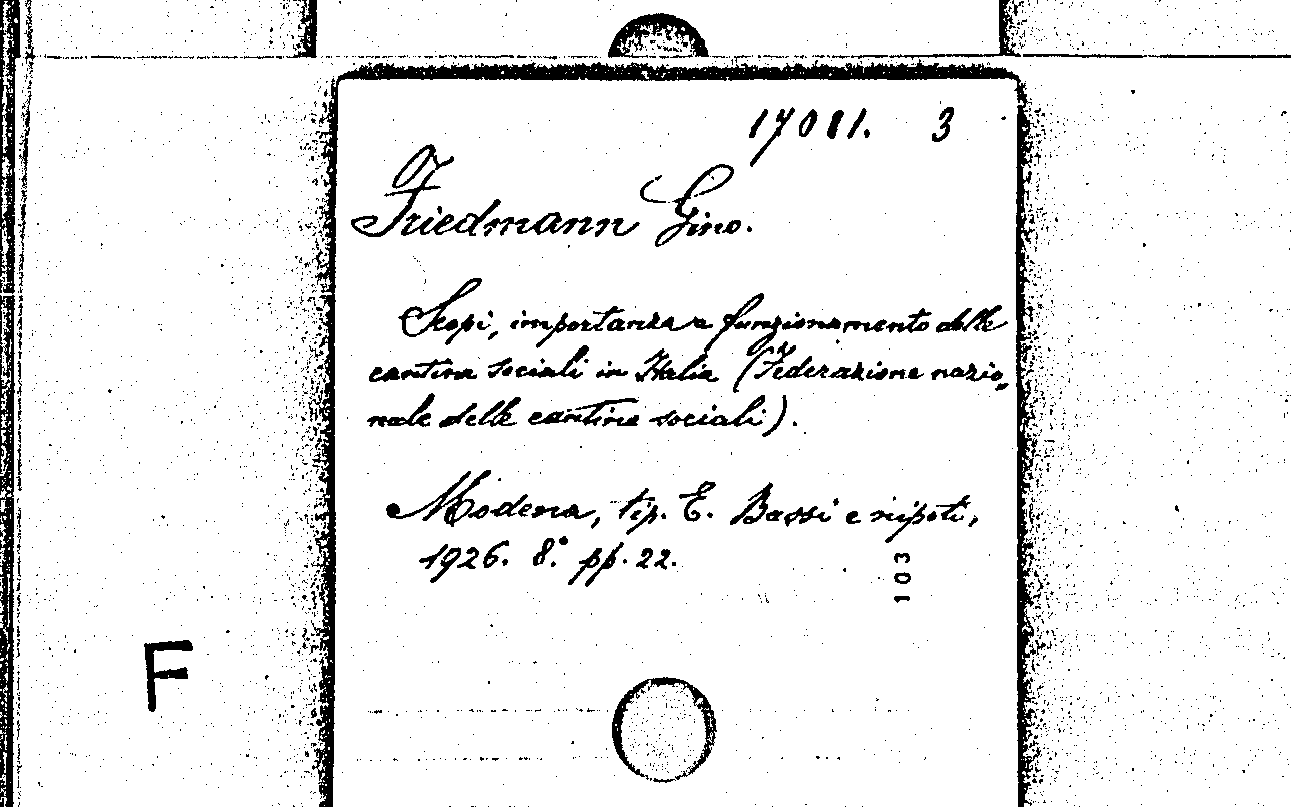 17011. 3
Friedmann Gino.
Scopi, importanza e funzionamento delle
cantine sociali in Italia (Federazione nazio-
nale delle cantine sociali).
Modena, tip. E. Bassi e nipoti,
1926. 8.° pp. 22.
103
F